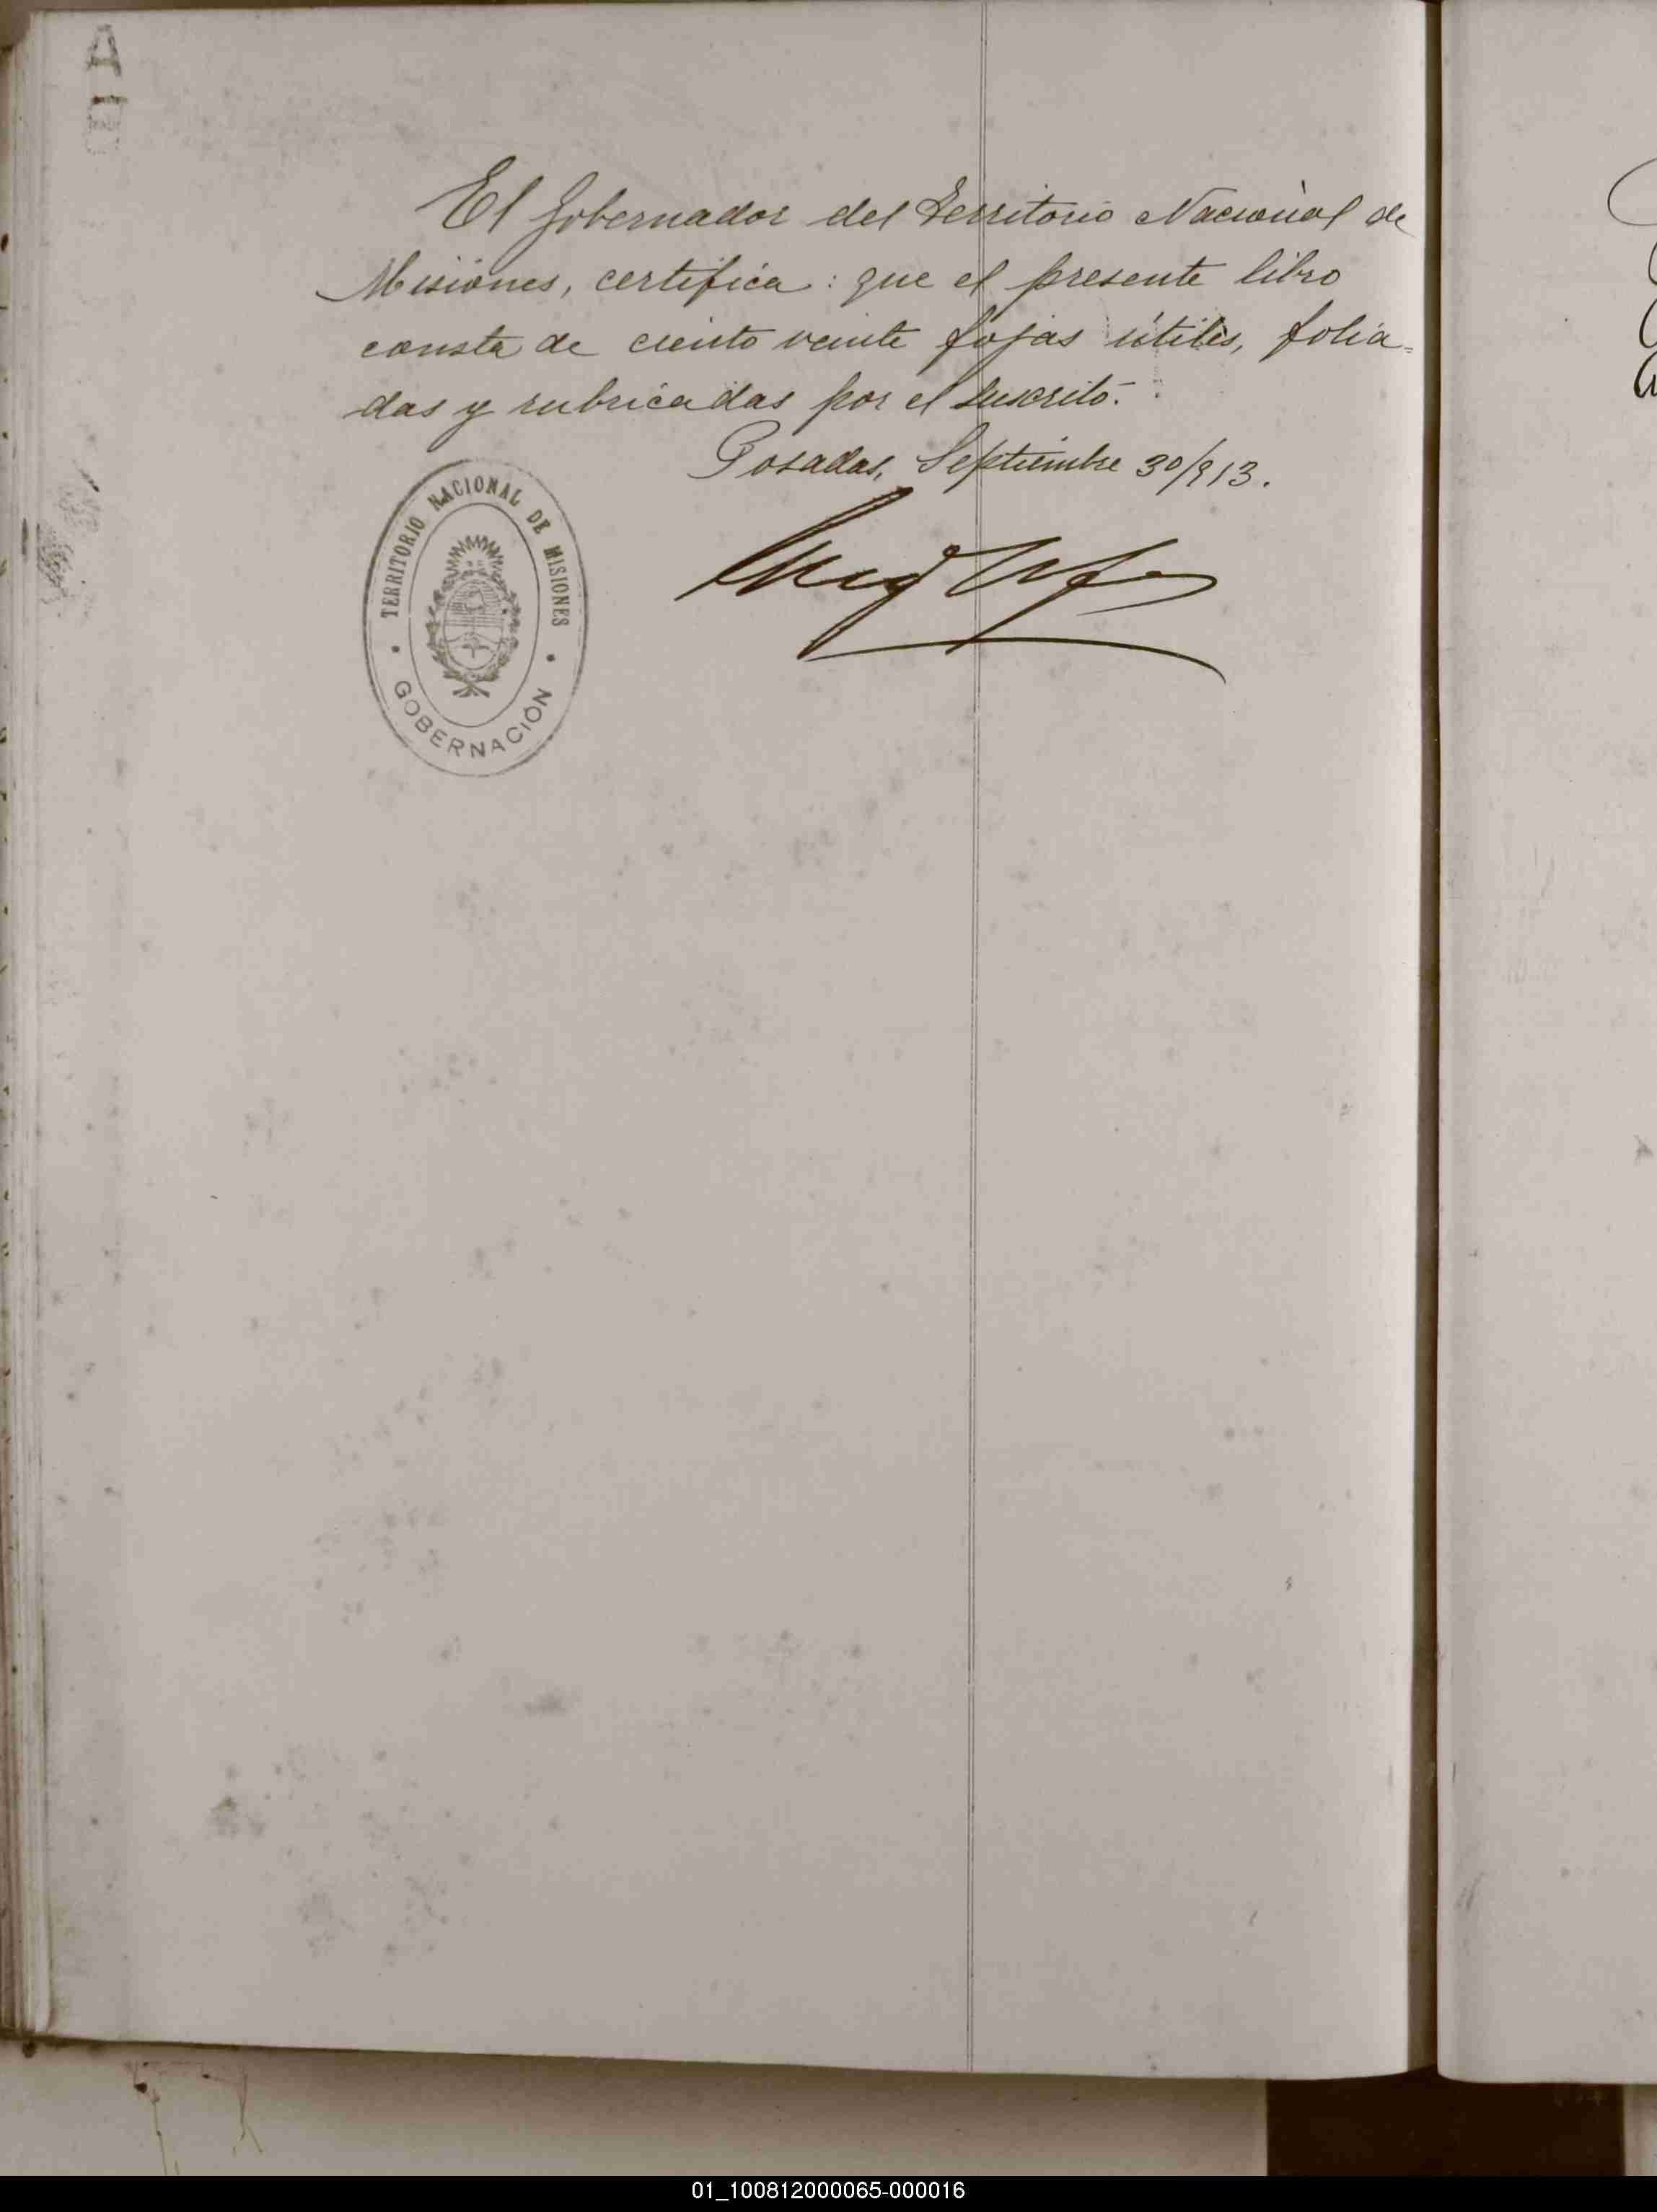 El Gobernador del Territorio Nacional de
Misiones, certifica: que el presente libro
consta de ciento veinte fojas útiles, folia=
das y rubricadas por el suscrito.
Posadas, Septiembre 30/913.
TERRITORIO NACIONAL DE MISIONES
GOBERNACIÓN
01_100812000065-000016